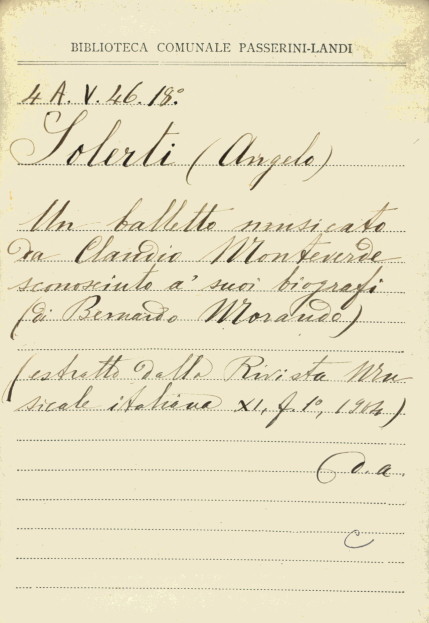 BIBLIOTECA COMUNALE PASSERINI-LANDI
4 A. V. 46. 18º
Solerti (Angelo)
Un balletto musicato
da Claudio Monteverde
sconosciuto a' suoi biografi
(di Bernardo Morando)
(estratto dalla Rivista Mu
sicale italiana XI, f. 1º, 1904)
(d. a.
C